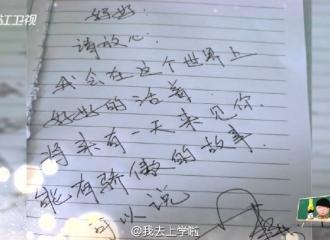 江卫视
好好:
请放心.
我会在这个世界上
好好的活着.
将来有一天来见你.
能有骄傲的故事
可以说
@我去上学啦